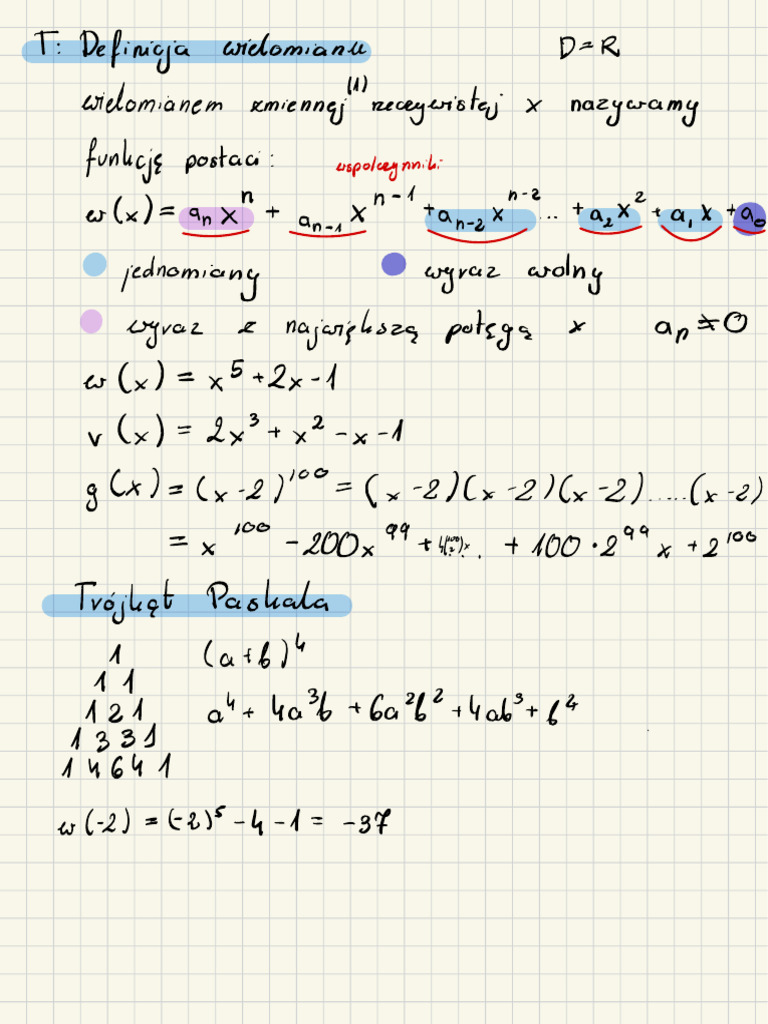 T: Definicja wielomianu D=R
wielomianem zmiennej (1) rzeczywistej x nazywamy
funkcję postaci: współczynniki
w(x) = aₙxⁿ + aₙ₋₁xⁿ⁻¹ + aₙ₋₂xⁿ⁻² ... + a₂x² + a₁x + a₀
jednomiany wyraz wolny
wyraz z największą potęgą x aₙ≠0
w(x) = x⁵+2x-1
v(x) = 2x³ + x² - x - 1
g(x) = (x-2)¹⁰⁰ = (x-2)(x-2)(x-2).....(x-2)
= x¹⁰⁰ - 200x⁹⁹ + . . + 100·2⁹⁹x + 2¹⁰⁰
Trójkąt Paskala
1 (a+b)⁴
1 1
1 2 1 a⁴ + 4a³b + 6a²b² + 4ab³ + b⁴
1 3 3 1
1 4 6 4 1
w(-2) = (-2)⁵ - 4 - 1 = -37